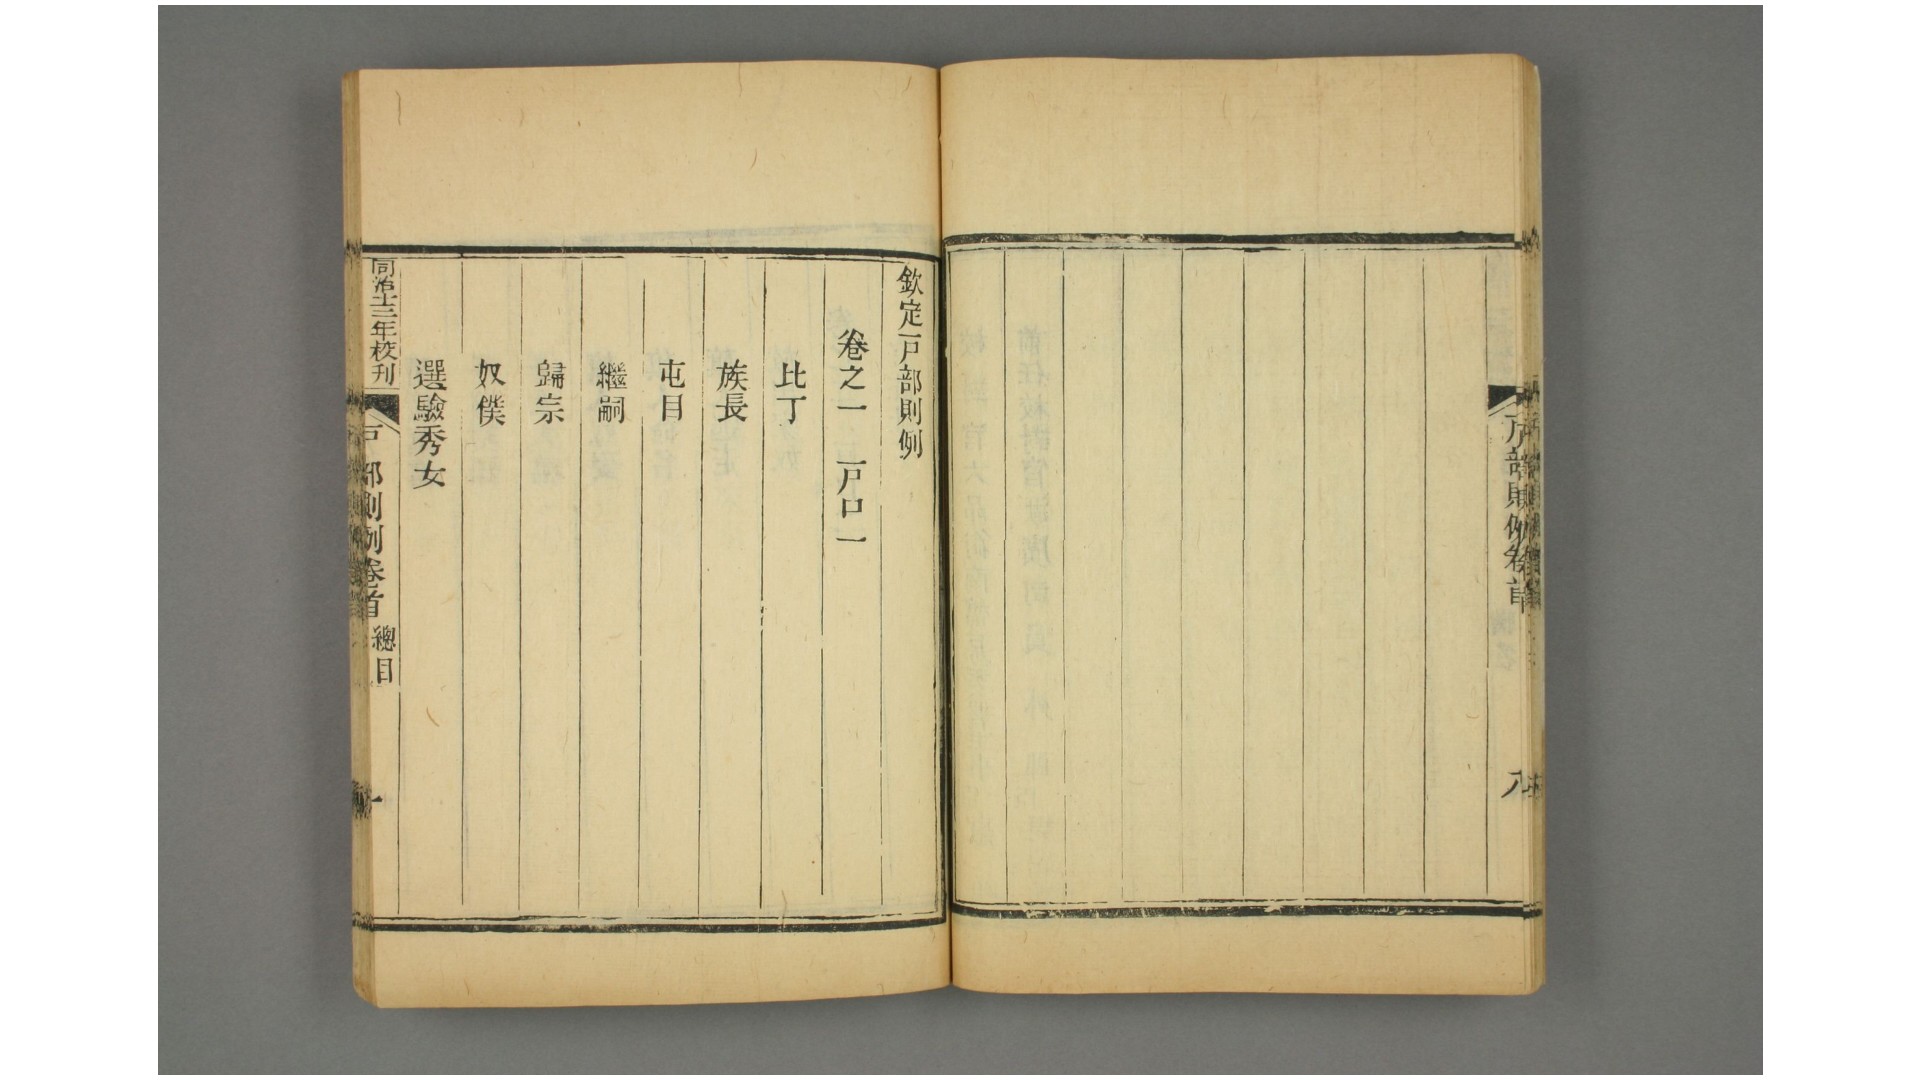 戶部則例卷首
八
欽定戶部則例
卷之一 戶口一
比丁
族長
屯目
繼嗣
歸宗
奴僕
選驗秀女
同治十三年校刊
戶部則例卷首
總目
一